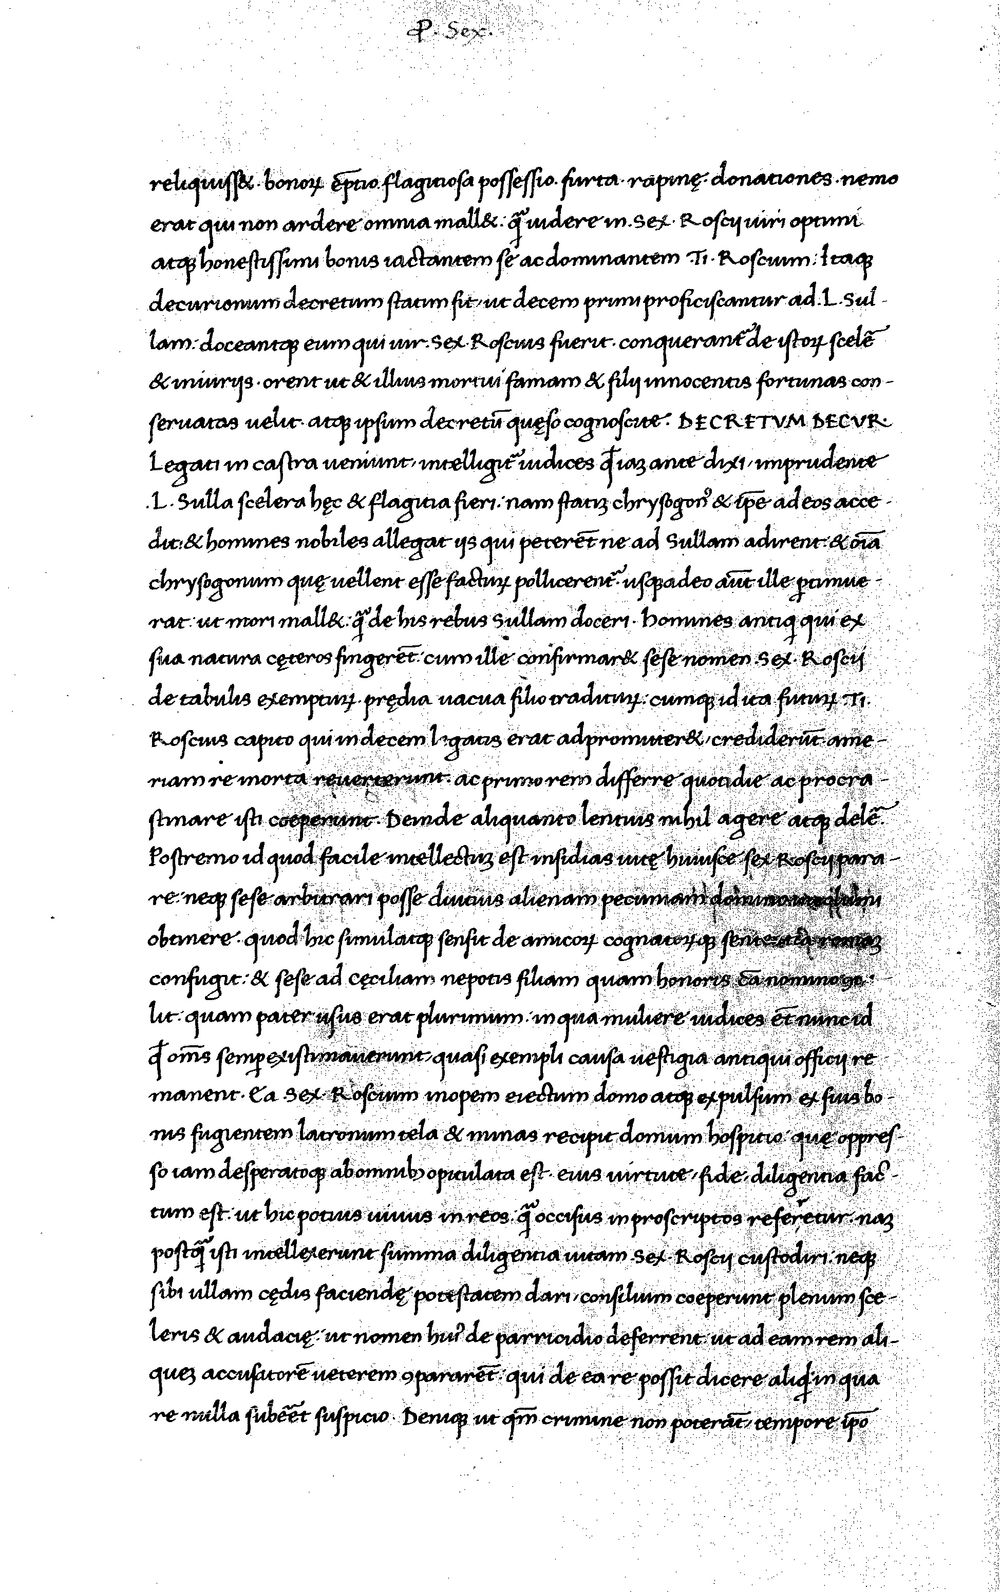 P. Sex.
reliquiss&. bonoꝝ ēptio flagitiosa possessio. furta. rapinę. donationes. nemo
erat qui non ardere omnia mall&. q̄ uidere in. Sex. Roscij uiri optimi
atqꝫ honestissimi bonis iactantem se ac dominantem .Ti. Roscium. Itaqꝫ
decurionum decretum statim fit, ut decem primi proficiscantur ad .L. Sul-
lam: doceantqꝫ eum qui uir. Sex. Roscius fuerit. conquerant᷑ de istoꝝ scelē
& iniurijs. orent ut & illius mortui famam & filij innocentis fortunas con-
seruatas uelit. atqꝫ ipsum decretū quęso cognoscite. DECRETVM DECVR.
Legati in castra ueniunt, intelligit᷑ iudices qd̄ iaꝫ ante dixi, imprudente
.L. Sulla scelera hęc & flagitia fieri. nam statiꝫ chrysogonꝰ & ip̄e ad eos acce-
dit: & homines nobiles allegat ijs qui peterēt ne ad Sullam adirent: & oīa
chrysogonum quę uellent esse factuꝝ pollicerent᷑. usqꝫ adeo aūt ille ꝑtimue-
rat. ut mori mall&. q̄ de his rebus Sullam doceri. Homines antiqi qui ex
sua natura cęteros fingerēt. cum ille confirmar& sese nomen Sex. Roscij
de tabulis exempturꝝ. prędia uacua filio traditurꝝ. cumqꝫ id ita futuꝝ .Ti.
Roscius capito qui in decem legatis erat ad promitter&, crediderūt. ame-
riam re inorta reuerterunt. ac primo rem differre quotidie ac procra-
stinare isti coeperunt. Deinde aliquanto lentius nihil agere atqꝫ delē.
Postremo id quod facile intellectuꝫ est insidias uitę huiusce sex Roscij para-
re. neqꝫ sese arbitrari posse diutius alienam pecuniam domino
obtinere. quod hic simulatqꝫ sensit de amicoꝝ cognatoꝝqꝫ
confugit: & sese ad cęciliam nepotis filiam quam honoris cā
lit. quam pater usus erat plurimum. in qua muliere iudices ēt nunc id
qd̄ om̄s semper existimauerunt, quasi exempli causa uestigia antiqui officij re
manent. Ea Sex. Roscium inopem eiectum domo atqꝫ expulsum ex suis bo-
nis fugientem latronum tela & minas recipit domum hospitio quę oppres-
so iam desperatoqꝫ ab omnibꝫ opitulata est. eius uirtute, fide, diligentia fac-
tum est. ut hic potius uiuus in reos. q̄ occisus in proscriptos referretur. naꝫ
postq̄ isti intellexerunt summa diligentia uitam Sex. Roscij custodiri. neqꝫ
sibi ullam cędis faciendę potestatem dari, consilium coeperunt plenum sce-
leris & audacię. ut nomen huiꝰ de parricidio deferrent. ut ad eam rem ali-
queꝫ accusatorē ueterem ꝯpararēt. qui de ea re possit dicere aliqd in qua
re nulla subēēt suspicio. Deniqꝫ ut qm̄ crimine non poterāt, tempore ip̄o